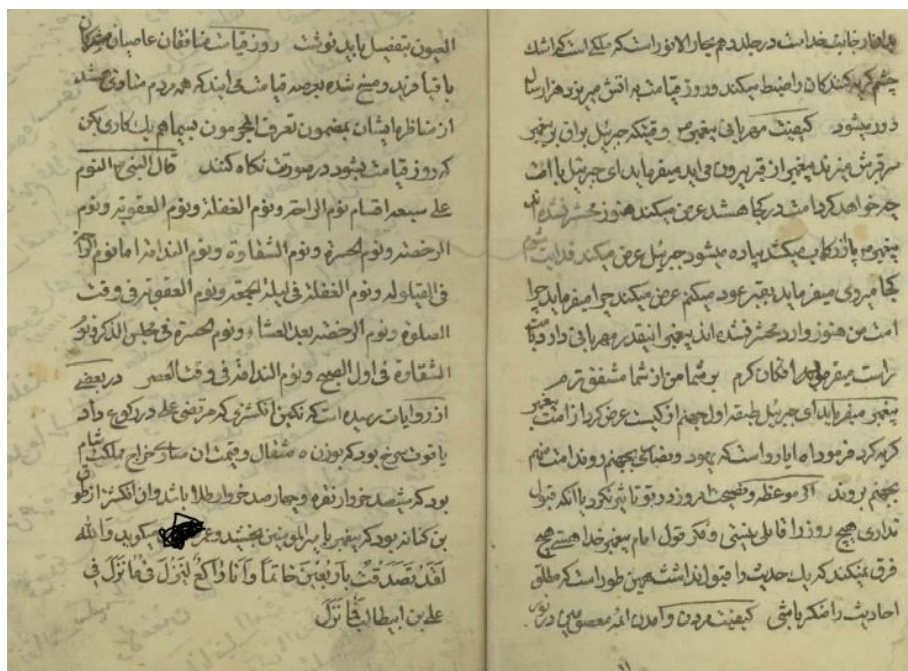 جانب خداست در جلد دهم بحار الانوار است که ملکی است که اشک
چشم گریه کنندکان را ضبط میکند و روز قیامت به اتش میریزد هزار سال
دور میشود کیفیت مهربانی پیغمبر ص وقتیکه جبرئیل براق بر پیغمبر
پیغمبر از قبر بیرون می اید میفرماید ای جبرئیل با امت
چه خواهد کرد امت در کجا هستند عرض میکند هنوز محشر نشده اند
پیغمبر ص پا از رکاب میکشد پیاده میشود جبرئیل عرض میکند فدایت شوم
کجا میروی میفرماید بقبر عود میکنم عرض میکند چرا میفرماید چرا
امت من هنوز وارد محشر نشده اند پیغمبر اینقدر مهربانی دارد
راست میفرماید بر شما من از شما مشفق ترم
پیغمبر میفرماید ای جبرئیل طبقه اول جهنم از کیست عرض کرد از امت پیغمبر
گریه کرد فرمود اه ایا رواست که یهود و نصاری بجهنم روند امت من هم
بجهنم بروند اگر موعظه و نصیحت امروز در تو تاثیر نکرد یا انکه قبول
نداری هیچ روز را قابل نیستی و فکر قول امام پیغمبر خدا هستی هیچ
فرق نمیکند که یک حدیث را قبول نداشته همین طور است که مطلق
احادیث را منکر باشی کیفیت مردن و امدن ائمه معصومین در
العیون بتفصیل باید نوشت روز قیامت منافقان عاصیان مشرکان
با قیافه بد و مسخ شده بعرصه قیامت می ایند که همه مردم
از مناظر ایشان بمضمون تعرف المجرمون بسیماهم یک کاری بکن
که روز قیامت بشود در صورتت نکاه کنند قال النبی ص النوم
علی سبعة اقسام نوم الراحة و نوم الغفلة و نوم العقوبة و نوم
الرخصة و نوم الحسرة و نوم الشقاوة و نوم الندامة اما نوم الراحة
فی القیلوله و نوم الغفلة فی لیلة الجمعة و نوم العقوبة فی وقت
الصلوة و نوم الرخصة بعد العشاء و نوم الحسرة فی مجلس الذکر و نوم
الشقاوة فی اول الصبح و نوم الندامة فی وقت العصر در بعضی
از روایات رسیده است که نکین انکشتری که مرتضی علی در رکوع داد
یاقوت سرخ بود که بوزن ه مثقال و قیمت ان خراج مملکت شام
بود که ششصد خروار نقره و چهار صد خروار طلا باشد و ان انکشتر از طوق
بن کنانه بود که پیغمبر بامیر المومنین بخشیدند و میکوید والله
لقد تصدقت بأربعین خاتما و أنا راکع لینزل فی ما نزل فی
علی بن ابیطالب فما نزل